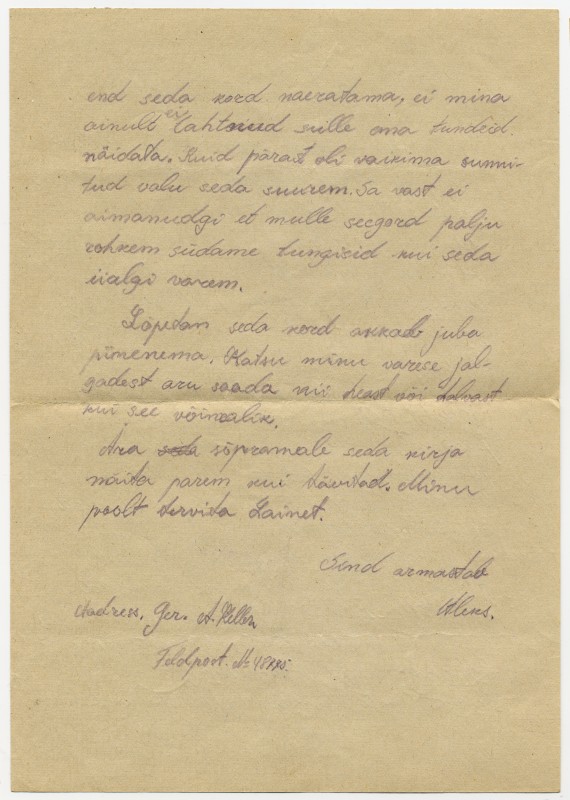 end seda kord naeratama, ei mina
ainult ei tahtnud sulle oma tundeid
näidata. Kuid pärast oli vaikima sunni-
tud valu seda suurem. Sa vast ei
aimanudgi et mulle seegord palju
rohkem südame tungisid kui seda
iialgi varem.
Lõpetan seda kord akkab juba
pimenema. Katsu minu varese jal-
gadest aru saada nii heast või halvast
kui see võimalik.
Ära seda sõpramale seda kirja
näita parem kui hävitad. Minu
poolt tervita Lainet.
Sind armastab
Aleks.
Aadress. Ger. A. Keller
Feldpost. №